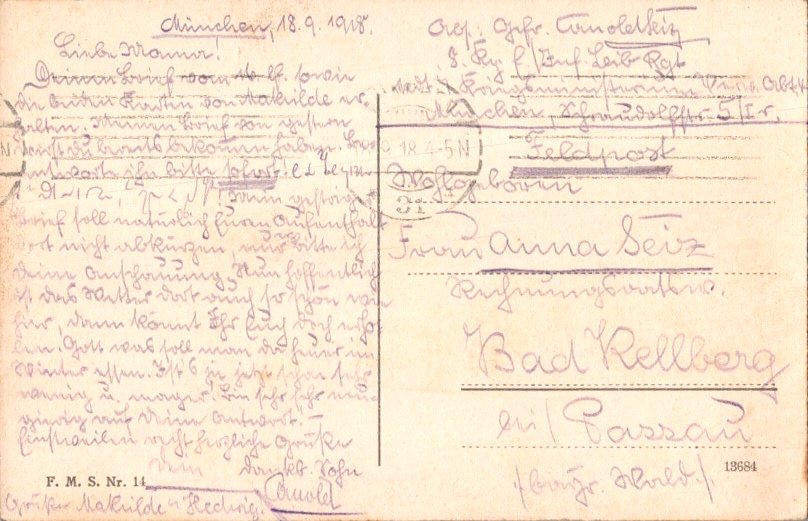 München, 18.9.1918.
Liebe Mama!
Deinen Brief vom 16. ds. sowie
die beiden Karten von Mathilde er-
halten. Meinen Brief von gestern
wirst du bereits bekommen haben.
antworte ihn bitte sofort!
Mein gestriger
Brief soll natürlich Euren Aufenthalt
dort nicht abkürzen, nur bitte ich
Deine Anschauung. Nun hoffentlich
ist das Wetter dort auch so schön wie
hier, dann könnt Ihr Euch doch erho-
len. Gott was soll man da heuer im
Winter essen. Ist's ja jetzt schon sehr
wenig u. mager. Bin sehr sehr neu-
gierig auf Deine Antwort. –
Einstweilen recht herzliche Grüße
Dein dankb. Sohn
Arnold
Grüße Mathilde u. Hedwig.
F. M. S. Nr. 14
Abs: Gefr. Arnold Seiz
Inf. Leib Rgt
Kriegsministerium
München, Schraudolfstr. 5/I r.
18. 4-5 N
Feldpost
Wohlgeboren
31
Frau Anna Seiz
Rechnungsratsw.
Bad Kellberg
bei / Passau
/bayr. Wald/.
13684